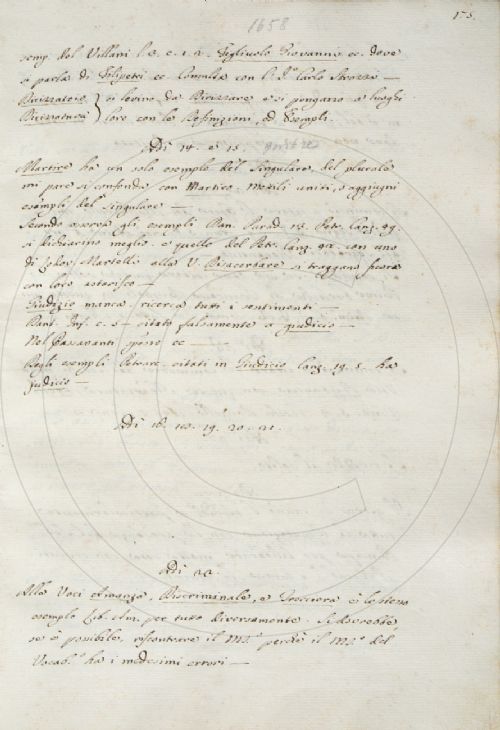 1658
175.
semp. del Villani l. 8. c. 1. 2. Figliuolo Giovanni ec. dove
si parla di Filipetri ec. Consulta con l. Carlo Strozzi —
Bicizzatoio } si levino da Bicizzare e si pongano a luoghi
Bicizzatura } loro con le Definizioni, ed Esempli.
Adì 14. e 15.
Martire ha un solo esemplo del singulare, del plurale
mi pare si confonda con Martiro. Metili uniti, e aggiugni
esempli del singulare —
Secondo osserva gli esempli Dan. Parad. 13. Petr. Canz. 49.
si dichiarino meglio. e quello del Petr. Canz. 42. con uno
di Lodov. Martelli alla V. si traggano fuora
con loro asterisco —
Giudizio manca. ricerca tutti i sentimenti —
Dant. Inf. c. 5 — citato falsamente a giudicio —
Nel Passavanti spesso ec —
Degli esempli Petrarc. citati in Giudicio Canz. 19. 5. ha
judicio —
Adì 16. 18. 19. 20. 21.
Adì 22.
Alle Voci Discriminale, e Treccera è lo stesso
esemplo Lib. Am. per tutto diversamente. Si dovrebbe,
se è possibile, riscontrare il Ms.º perchè il Ms.º del
Vocab.º ha i medesimi errori —